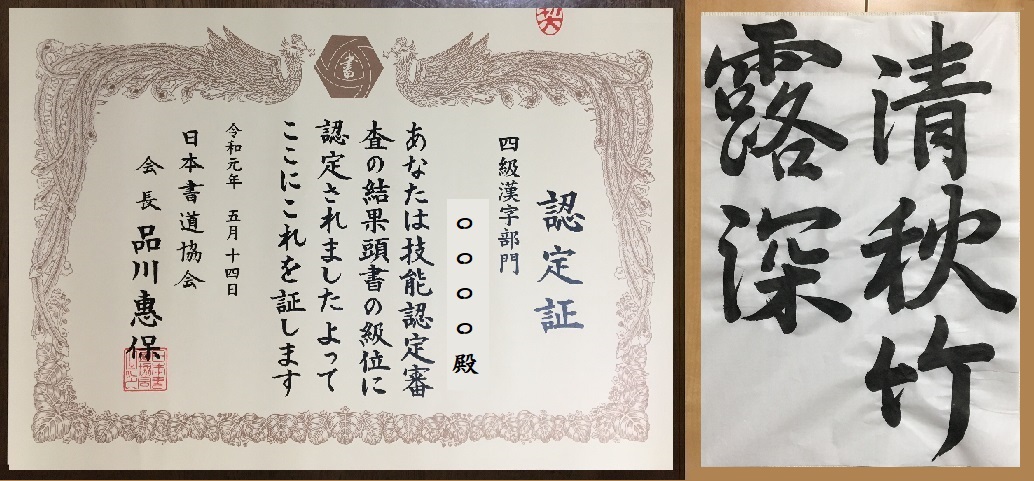 書
認定証
四級漢字部門
○○○○殿
あなたは技能認定審
査の結果頭書の級位に
認定されましたよって
ここにこれを証します
令和元年 五月十四日
日本書道協会
会長 品川惠保
清秋竹
露深